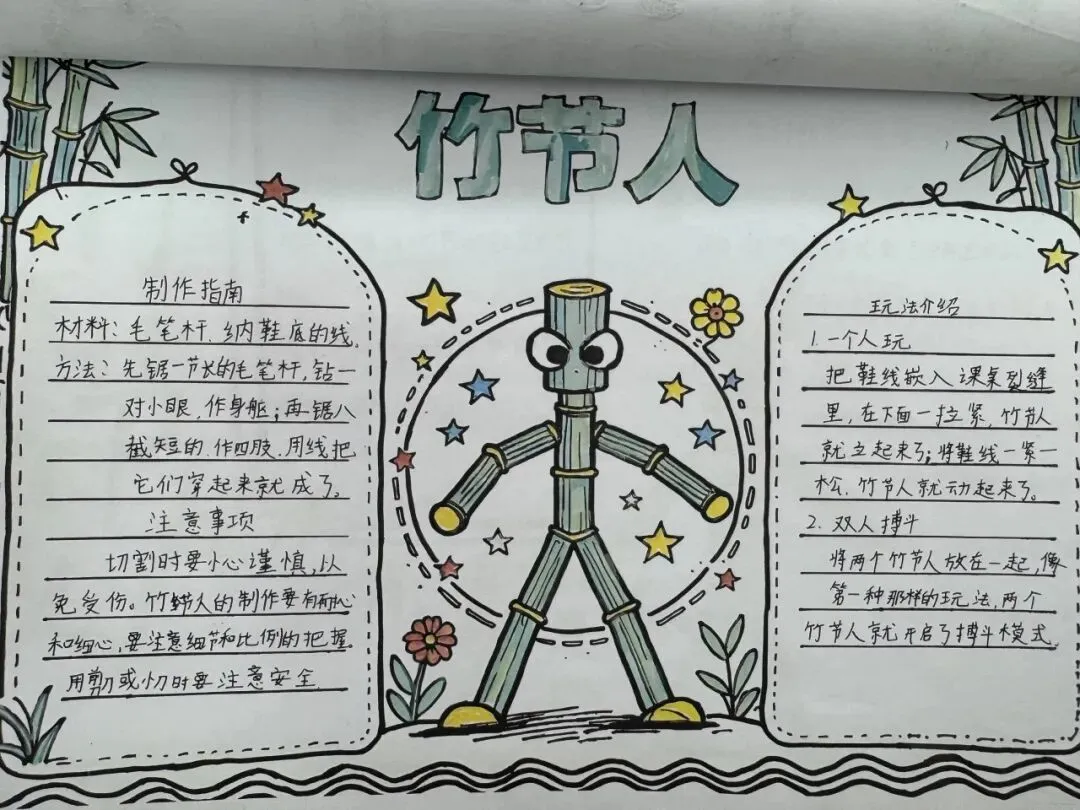 竹节人
制作指南
材料：毛笔杆、纳鞋底的线。
方法：先锯一节长的毛笔杆，钻一
对小眼，作身躯；再锯八
截短的，作四肢，用线把
它们穿起来就成了。
注意事项
切割时要小心谨慎，以
免受伤。竹节人的制作要有耐心
和细心，要注意细节和比例的把握。
用剪刀或小刀时要注意安全
玩法介绍
1.一个人玩
把鞋线嵌入课桌裂缝
里，在下面一拉紧，竹节人
就立起来了；将鞋线一紧一
松，竹节人就动起来了。
2.双人搏斗
将两个竹节人放在一起，像
第一种那样的玩法，两个
竹节人就开启了搏斗模式